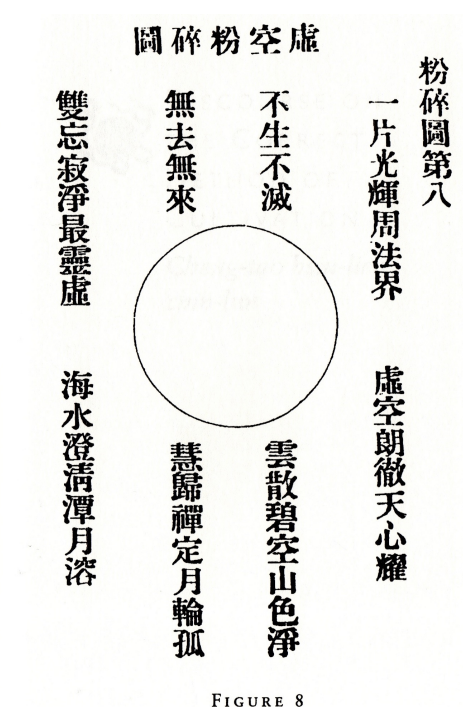 虛空粉碎圖
粉碎圖第八
一片光輝周法界
虛空朗徹天心耀
不生不滅
無去無來
雲散碧空山色淨
慧歸禪定月輪孤
雙忘寂淨最靈虛
海水澄清潭月溶
FIGURE 8